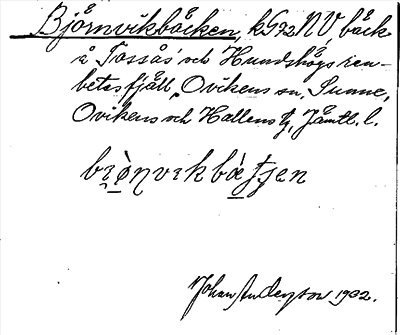 Björnvikbäcken, k. 592 NV, bäck
å Tossås' och Hundshögs ren-
betesfjäll, Ovikens sn, Sunne,
Ovikens och Hallens tg, Jämtl. l.
Johan Anderzon 1902.